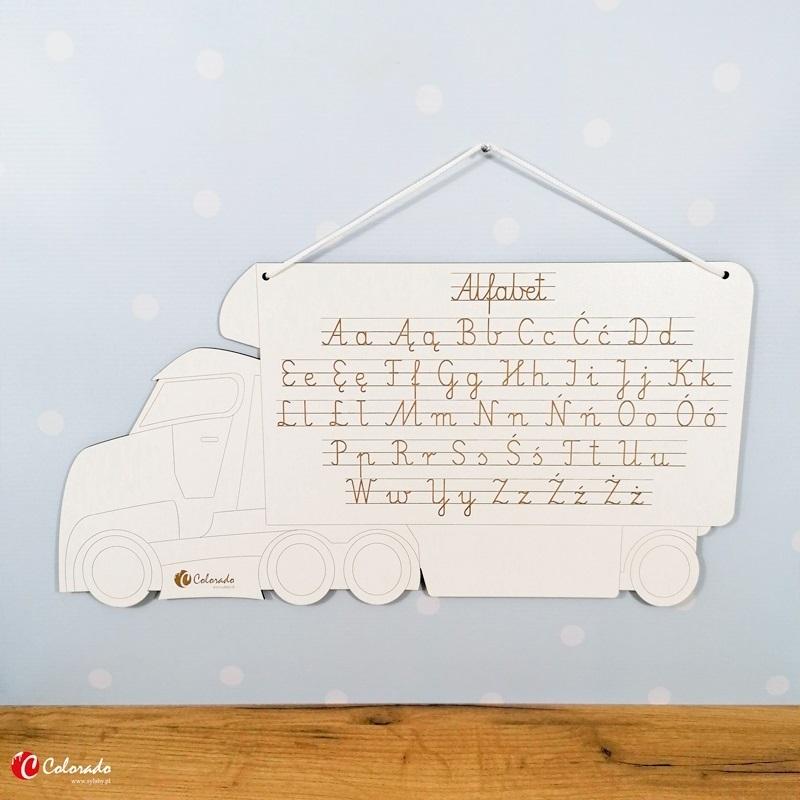 Alfabet
Aa Ąą Bb Cc Ćć Dd
Ee Ęę Ff Gg Hh Ii Jj Kk
Ll Łł Mm Nn Ńń Oo Óó
Pp Rr Ss Śś Tt Uu
Ww Yy Zz Źź Żż
Colorado
Colorado
www.sylaby.pl